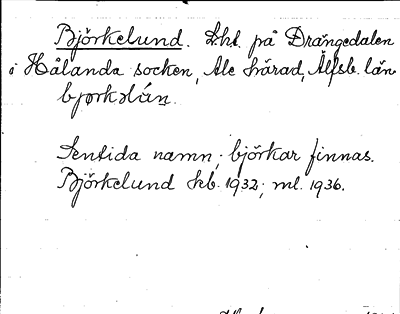 Björkelund. Lht. på Drängedalen
i Hålanda socken, Ale härad, Älfsb. län
Sentida namn; björkar finnas.
Björkelund kb. 1932; ml. 1936.